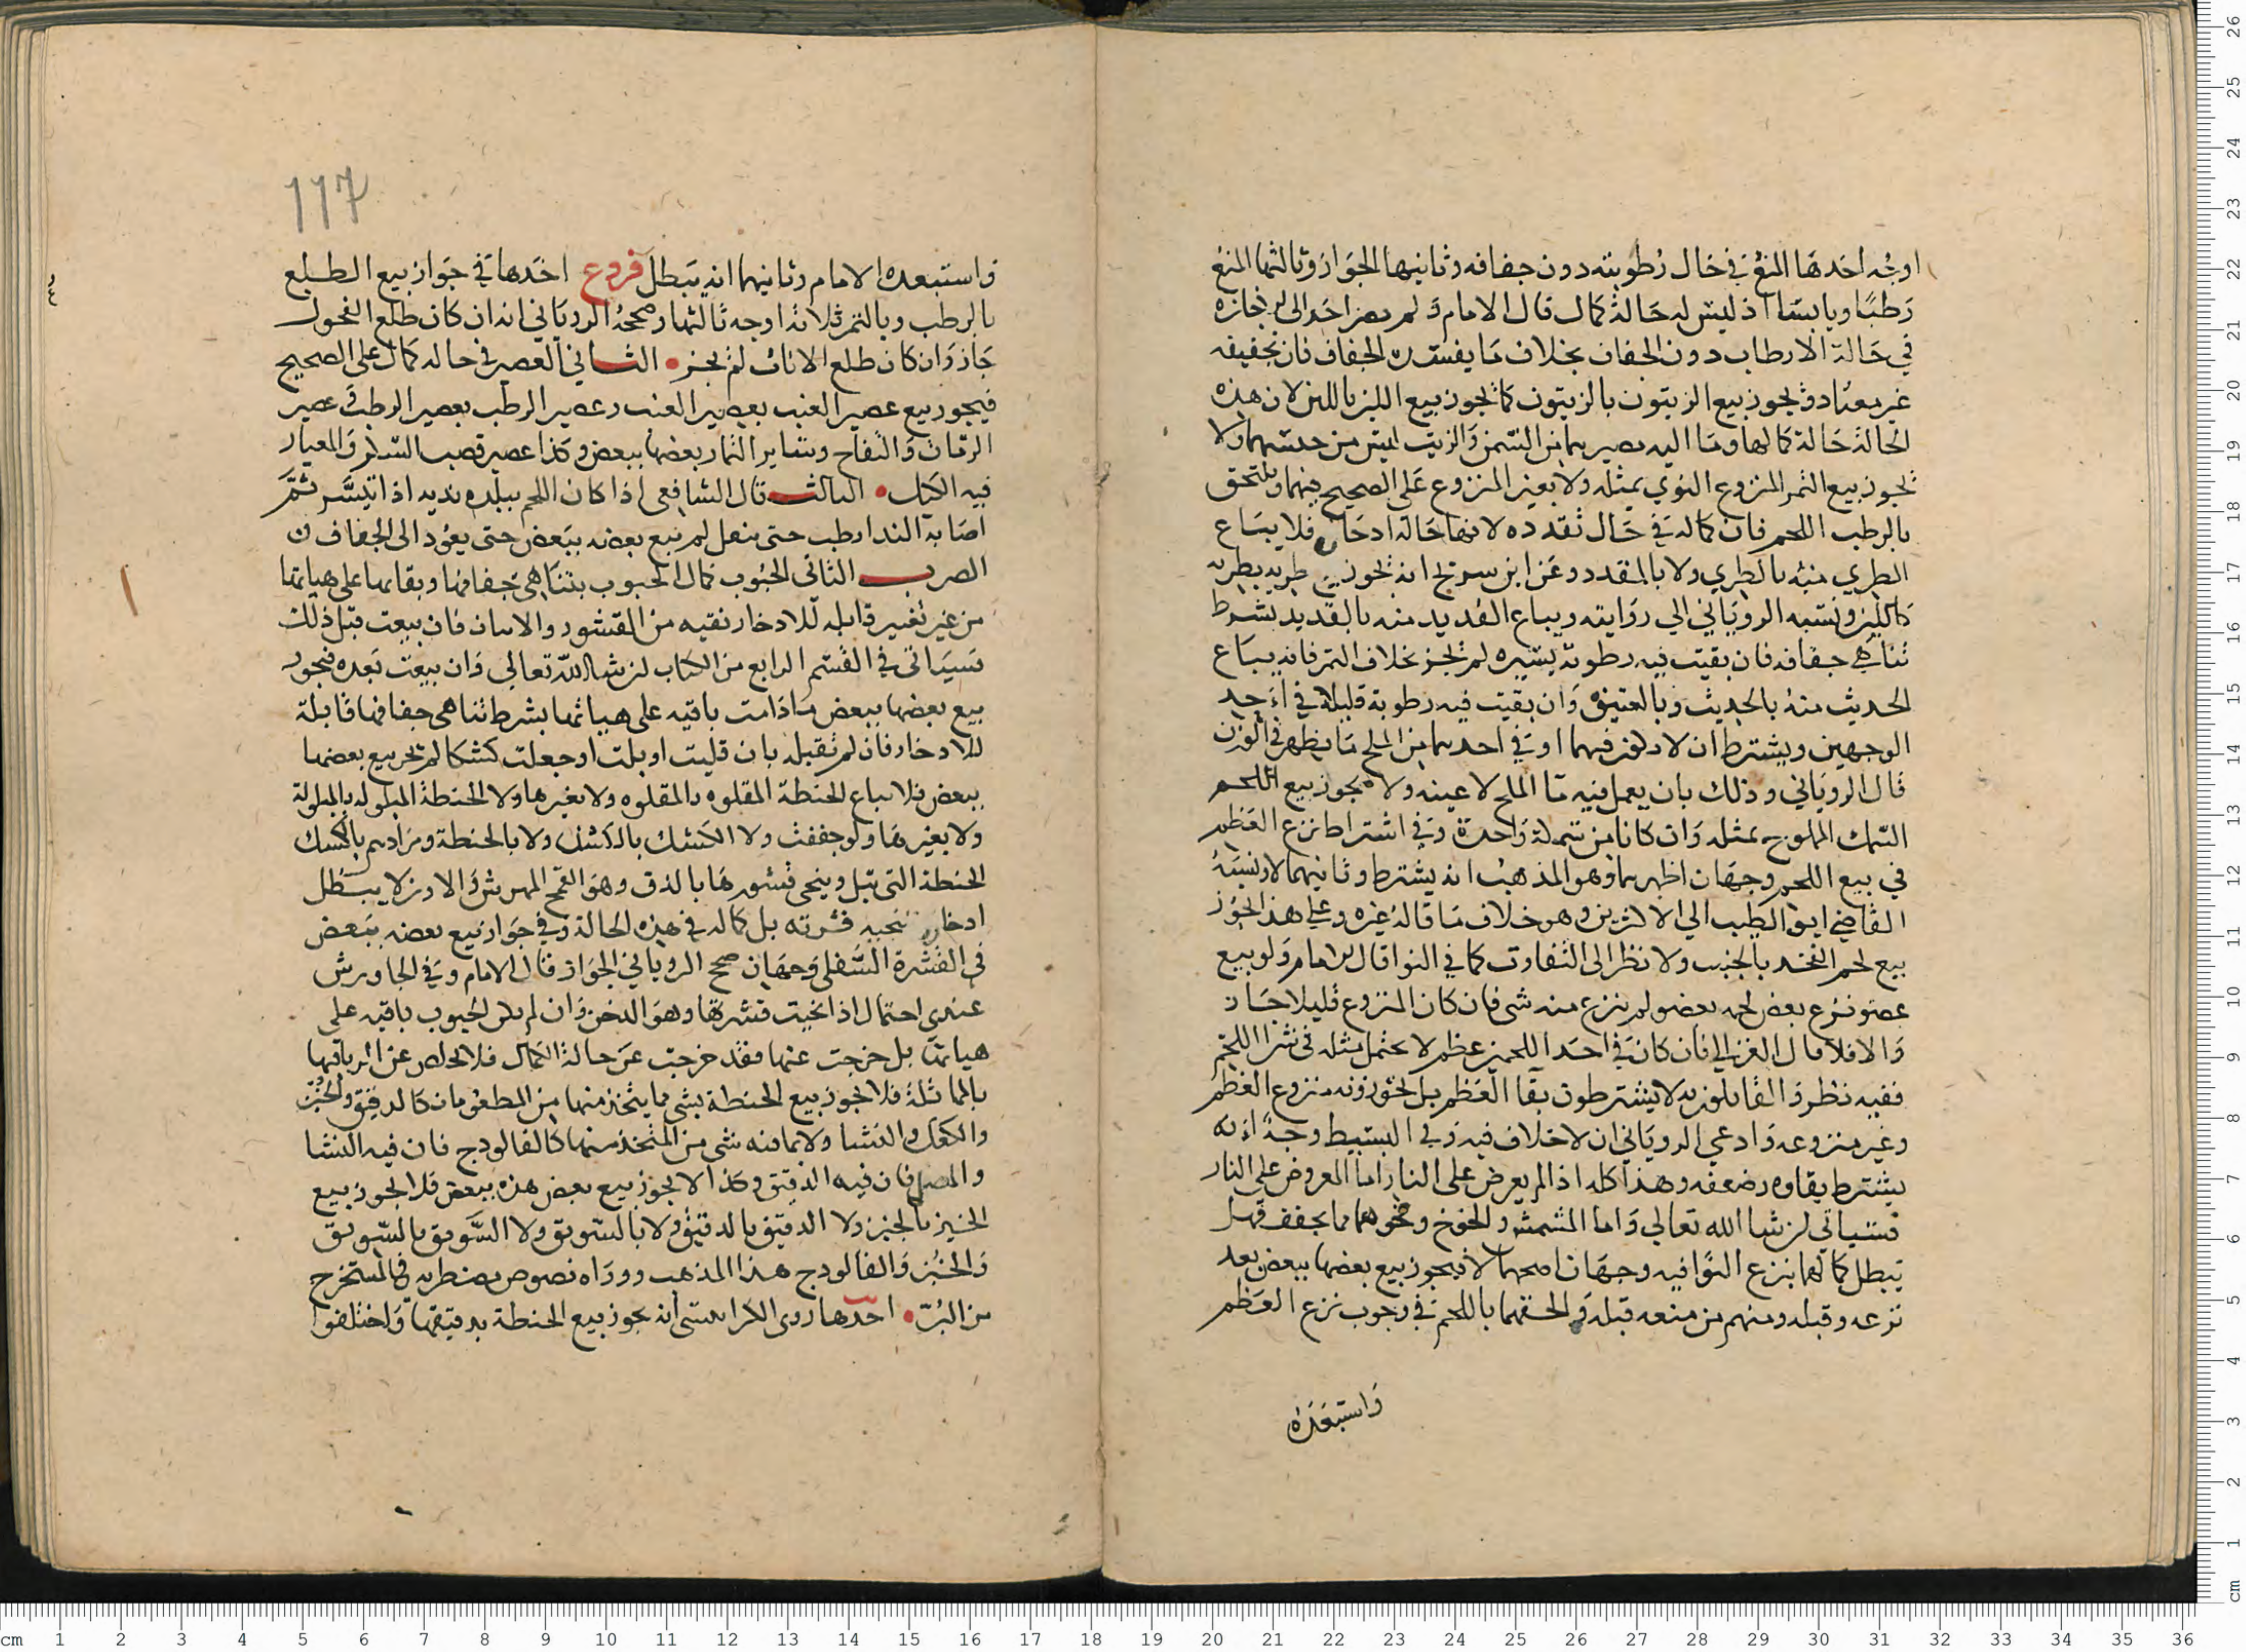 اوجه احدها المنع في حال رطوبته دون جفافه وثانيها الجواز وثالثها المنع
رطبا ويابسا اذ ليس له حالة كمال قال الامام ولم يصر احد الى اجازه
في حالة الارطاب دون الجفاف بخلاف ما يفسده الجفاف فان تجفيفه
غير معتاد ويجوز بيع الزيتون بالزيتون كما يجوز بيع اللبن باللبن لان هذه
الحالة حالة كمالها وما اليه مصيرهما من السمن والزيت ليس من جنسهما ولا
يجوز بيع التمر المنزوع النوي بمثله ولا بغير المنزوع على الصحيح فيهما ويلتحق
بالرطب اللحم فان كماله في حال تقدده لانها حالة ادخاره فلا يباع
الطري منه بالطري ولا بالمقدد وعن ابن سريج انه يجوز بيع طريه بطريه
كاللبن ونسبه الروياني الي روايته ويباع القديد منه بالقديد بشرط
تناهي جفافه فان بقيت فيه رطوبة يسيره لم يجز بخلاف التمر فانه يباع
الحديث منه بالحديث وبالعتيق وان بقيت فيه رطوبة قليلة في احد
الوجهين ويشترط ان لا يكون فيهما او في احدهما من الملح ما يظهر في الوزن
قال الروياني وذلك بان يعمل فيه ما الملح لا عينه ولا يجوز بيع اللحم
السمك المملوح بمثله وان كانا من سمكة واحدة وفي اشتراط نزع العظم
في بيع اللحم وجهان اظهرهما وهو المذهب انه يشترط وثانيهما لا ونسبه
القاضي ابو الطيب الي الاكثرين وهو خلاف ما قاله غيره وعلى هذا يجوز
بيع لحم الفخذ بالجنب ولا نظر الى التفاوت كما في النوا قال الامام ولو بيع
عضو نزع بعض لحمه بعضو لم ينزع منه شي فان كان المنزوع قليلا جاز
والا فلا قال الغزالي فان كان في احد اللحمين عظم لا يحتمل مثله في شرا اللحم
ففيه نظر والقايلون به لا يشترطون بقا العظم بل يجوزونه منزوع العظم
وغير منزوعه وادعي الروياني ان لا خلاف فيه وفي البسيط وجه انه
يشترط بقاوه وضعفه وهذا كله اذا لم يعرض على النار اما المعروض على النار
فسياتي ان شا الله تعالي واما المشمش والخوخ ونحوهما مما يجفف فهل
يبطل كمالهما بنزع النوا فيه وجهان اصحهما لا فيجوز بيع بعضها ببعض بعد
نزعه وقبله ومنهم من منعه قبله والحقهما باللحم في وجوب نزع العظم
واستبعده
117
واستبعده الامام وثانيهما انه يبطل فروع احدها في جواز بيع الطلع
بالرطب وبالتمر ثلاثة اوجه ثالثها وصححه الروياني انه ان كان طلع الفحول
جاز وان كان طلع الاناث لم يجز الثاني العصير في حاله كمال على الصحيح
فيجوز بيع عصير العنب بعصير العنب وعصير الرطب بعصير الرطب وعصير
الرمان والتفاح وسائر الثمار بعضها ببعض وكذا عصير قصب السكر والمعيار
فيه الكيل الثالث قال الشافعي اذا كان اللحم ببلده نديه اذا تيسر ثم
اصابه الندا رطب حتى يثقل لم يبع بعضه ببعض حتى يعود الى الجفاف
الضرب الثاني الحبوب كمال الحبوب بتناهي جفافها وبقائها على هياتها
من غير تغيير قابله للادخار نقيه من القشور والاتبان فان بيعت قبل ذلك
فسياتي في القسم الرابع من الكتاب ان شا الله تعالي وان بيعت بعده فيجوز
بيع بعضها ببعض ما دامت باقيه على هياتها بشرط تناهي جفافها قابلة
للادخار فان لم تقبله بان قليت او بلت او جعلت كشكا لم يجز بيع بعضها
ببعض فلا يباع الحنطة المقلوه بالمقلوه ولا بغيرها ولا الحنطة المبلوله بالمبلولة
ولا بغيرها ولو جففت ولا الكشك بالكشك ولا بالحنطة ومرادهم بالكشك
الحنطة التي تبل وينحى قشورها بالدق وهو القمح المهرش والارز لا يبطل
ادخاره بتنحيه قشرته بل كماله في هذه الحالة وفي جواز بيع بعضه ببعض
في القشرة السفلى وجهان صحح الروياني الجواز قال الامام وفي الجاورش
عندي احتمال اذا نحيت قشرتها وهو الدخن وان لم تكن الحبوب باقيه على
هياتها بل خرجت عنها فقد خرجت عن حالة الكمال فلا تخلص عن الربا فيها
بالمماثلة فلا يجوز بيع الحنطة بشي مما يتخذ منها من المطعومات كالدقيق والخبز
والكعك والنشا ولا بما فيه شي من المتخذ منها كالفالودج فان فيه النشا
والمصل فان فيه الدقيق وكذا لا يجوز بيع بعض هذه ببعض فلا يجوز بيع
الخبز بالخبز ولا الدقيق بالدقيق ولا بالسويق ولا السويق بالسويق
والخبز والفالودج هذا المذهب ووراه نصوص مضطربه في المستخرج
من البر احدها روى الكرابيسي انه يجوز بيع الحنطة بدقيقها واختلفوا